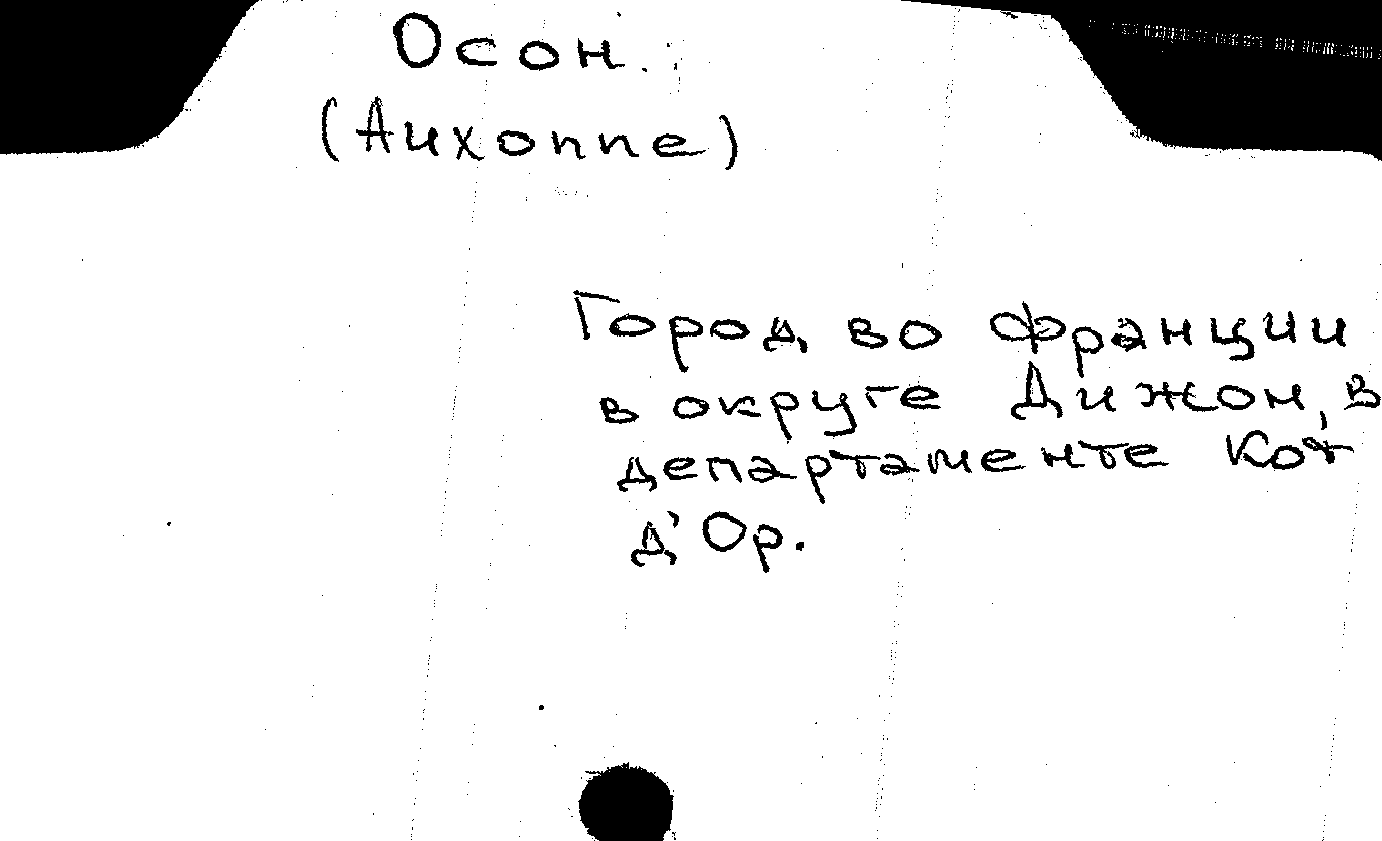 Осон.
(Auxonne)
Город во Франции
в округе Дижон, в
департаменте Кот
д'Ор.